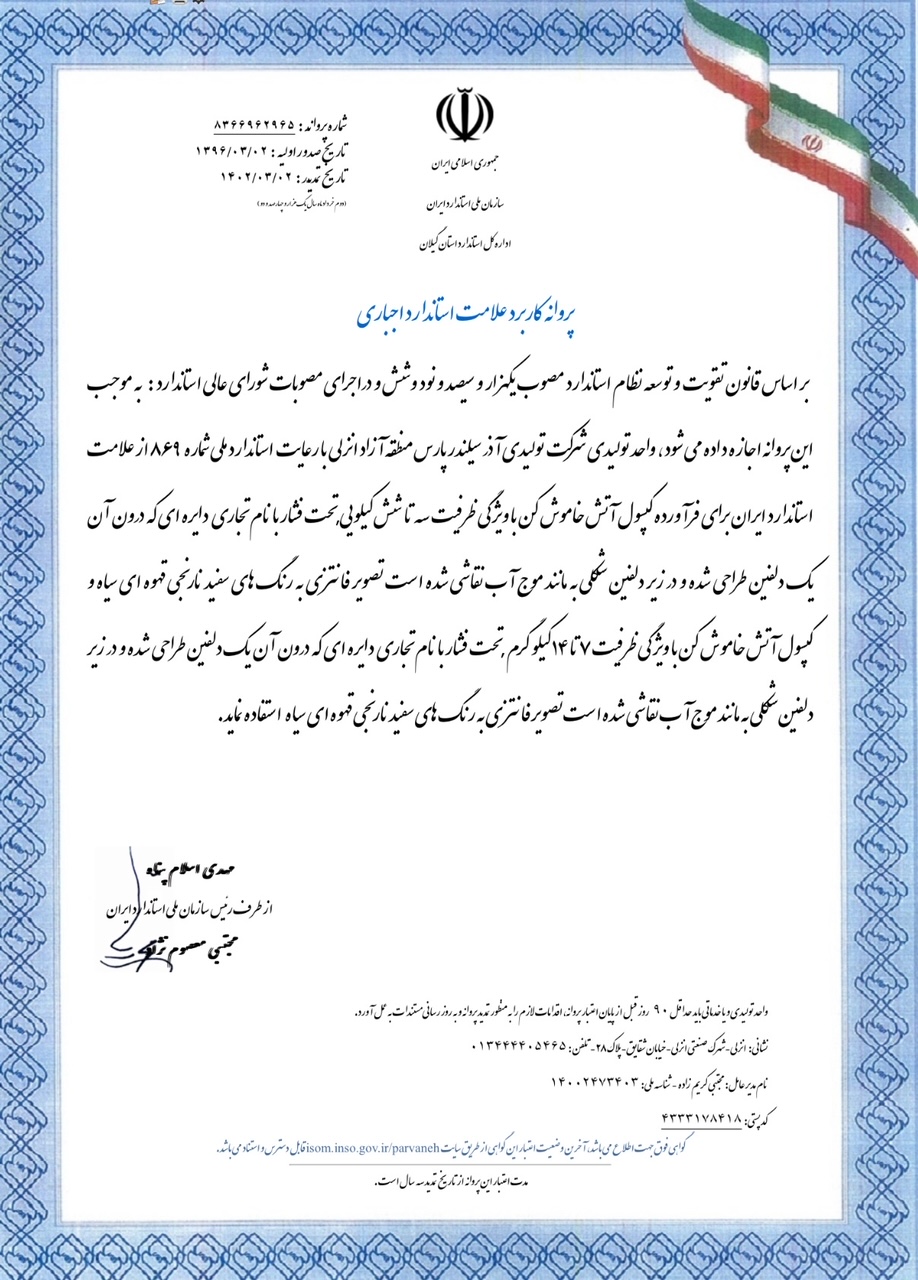 جمهوری اسلامی ایران
سازمان ملی استاندارد ایران
اداره کل استاندارد استان گیلان
شماره پروانه : ۸۳۶۶۹۶۲۹۶۵
تاریخ صدور اولیه : ۱۳۹۶/۰۳/۰۲
تاریخ تمدید : ۱۴۰۲/۰۳/۰۲
(دوم خرداد ماه سال یک هزار و چهارصد و دو)
پروانه کاربرد علامت استاندارد اجباری
بر اساس قانون تقویت و توسعه نظام استاندارد مصوب یکهزار و سیصد و نود و شش و در اجرای مصوبات شورای عالی استاندارد : به موجب
این پروانه اجازه داده می شود ، واحد تولیدی شرکت تولیدی آذر سیلندر پارس منطقه آزاد انزلی با رعایت استاندارد ملی شماره ۸۶۹ از علامت
استاندارد ایران برای فرآورده کپسول آتش خاموش کن با ویژگی ظرفیت سه تا شش کیلویی,تحت فشار با نام تجاری دایره ای که درون آن
یک دلفین طراحی شده و در زیر دلفین شکلی به مانند موج آب نقاشی شده است تصویر فانتزی به رنگ های سفید نارنجی قهوه ای سیاه و
کپسول آتش خاموش کن با ویژگی ظرفیت ۷ تا ۱۴کیلو گرم ,تحت فشار با نام تجاری دایره ای که درون آن یک دلفین طراحی شده و در زیر
دلفین شکلی به مانند موج آب نقاشی شده است تصویر فانتزی به رنگ های سفید نارنجی قهوه ای سیاه استفاده نماید.
مهدی اسلام پناه
از طرف رئیس سازمان ملی استاندارد ایران
مجتبی معصوم نژاد
واحد تولیدی و یا خدماتی باید حداقل ۹۰ روز قبل از پایان اعتبار پروانه، اقدامات لازم را به منظور تمدید پروانه و به روز رسانی مستندات به عمل آورد.
نشانی: انزلی-شهرک صنعتی انزلی-خیابان شقایق-پلاک ۲۸-تلفن: ۰۱۳۴۴۴۰۵۴۶۵
نام مدیر عامل: مجتبی کریم زاده - شناسه ملی: ۱۴۰۰۲۴۷۳۴۰۳
کد پستی: ۴۳۳۱۷۸۴۱۸
گواهی فوق جهت اطلاع می باشد، آخرین وضعیت اعتبار این گواهی از طریق سایت isom.inso.gov.ir/parvaneh قابل دسترس و استناد می باشد.
مدت اعتبار این پروانه از تاریخ تمدید سه سال است.